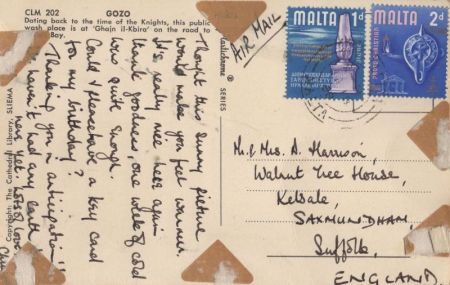 CLM 202 GOZO
Dating back to the time of the Knights, this public
wash place is at 'Ghajn il-Kbira' on the road to
Bay.
Copyright: The Cathedral Library, SLIEMA
SERIES
AIR MAIL
MALTA 1d
MALTA 2d
Thought this sunny picture
would make you feel warmer.
It's really nice here again
thank goodness, one week of cold
was quite enough.
Could I please have a key card
for my birthday?
Thanking you in anticipation!!
haven't had any earth
news yet. Lots of love
Mr & Mrs. A. Harrison,
Walnut Tree House,
Kelsale,
SAXMUNDHAM,
Suffolk,
ENGLAND.